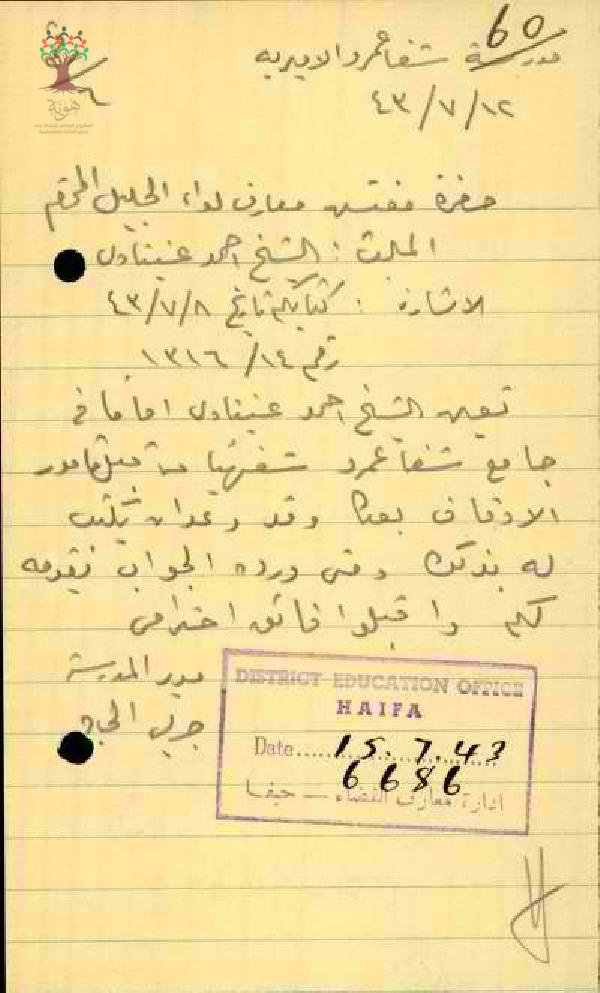 60
مدرسة شفاعمرو الاميرية
٤٣/٧/١٢
هوية
حضرة مفتش معارف لواء الجليل المحترم
المبحث : الشيخ احمد عنبتاوي
الاشارة : كتابكم تاريخ ٤٣/٧/٨
رقم ١٤/ ١٣١٦
تعين الشيخ احمد عنبتاوي اماما في
جامع شفاعمرو شفهيا من قبل مامور
الاوقاف بعكا وقد وعد ان يكتب
له بذلك ومتى ورده الجواب نقدمه
لكم واقبلوا فائق احترامي
مدير المدرسة
DISTRICT EDUCATION OFFICE
HAIFA
Date 15.7.43
6686
ادارة معارف القضاء — حيفا